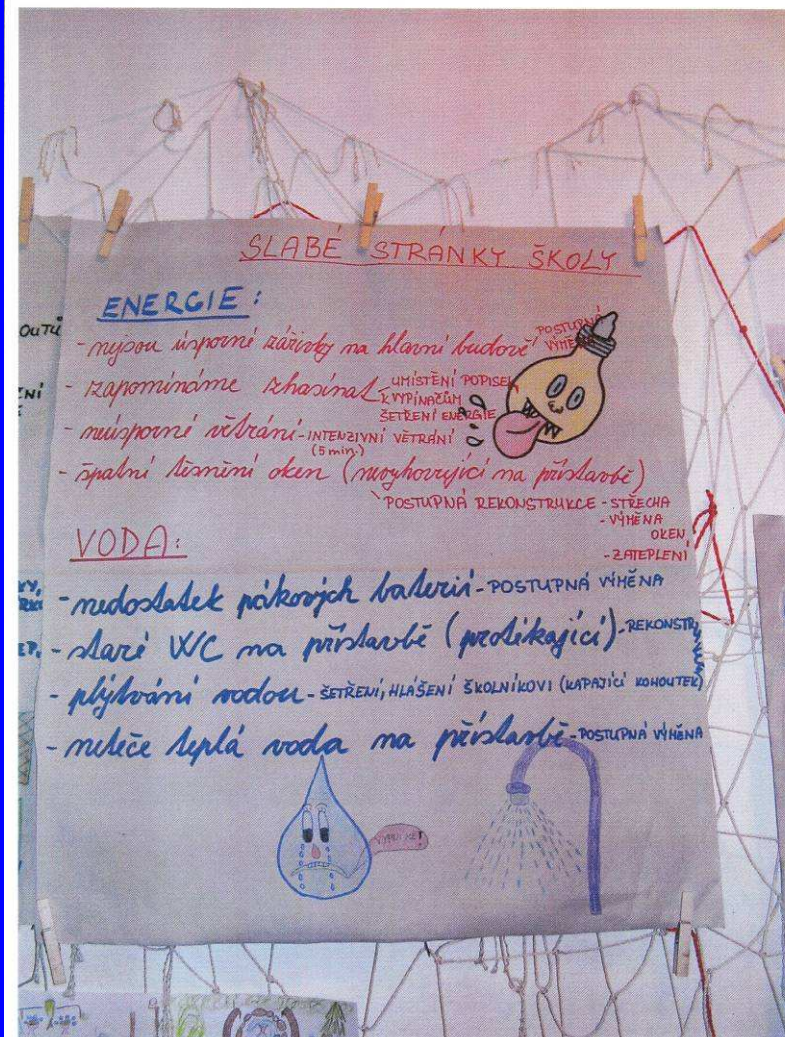 SLABÉ STRÁNKY ŠKOLY
ENERGIE:
- nejsou úsporné zářivky na hlavní budově POSTUPNÁ VÝMĚNA
- zapomínáme zhasínat - UMÍSTĚNÍ POPISEK
K VYPÍNAČŮM
ŠETŘENÍ ENERGIE
- neúsporné větrání - INTENZIVNÍ VĚTRÁNÍ
(5 min.)
- špatní těsnění oken (nevyhovující na přístavbě)
POSTUPNÁ REKONSTRUKCE - STŘECHA
- VÝMĚNA
OKEN,
- ZATEPLENÍ
VODA:
- nedostatek pákových baterií - POSTUPNÁ VÝMĚNA
- staré WC na přístavbě (protékající) - REKONSTR
- plýtvání vodou - ŠETŘENÍ, HLÁŠENÍ ŠKOLNÍKOVI (KAPAJÍCÍ KOHOUTEK)
- neteče teplá voda na přístavbě - POSTUPNÁ VÝMĚNA